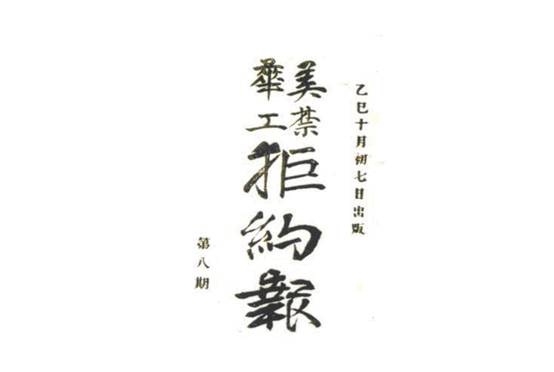 乙巳十月初七日出版
美禁
華工
拒約報
第八期